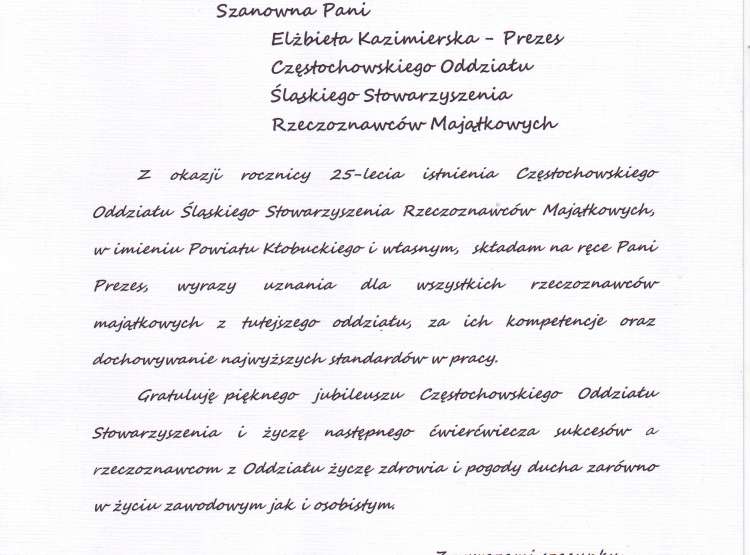 Szanowna Pani
Elżbieta Kazimierska - Prezes
Częstochowskiego Oddziału
Śląskiego Stowarzyszenia
Rzeczoznawców Majątkowych
Z okazji rocznicy 25-lecia istnienia Częstochowskiego
Oddziału Śląskiego Stowarzyszenia Rzeczoznawców Majątkowych,
w imieniu Powiatu Kłobuckiego i własnym, składam na ręce Pani
Prezes, wyrazy uznania dla wszystkich rzeczoznawców
majątkowych z tutejszego oddziału, za ich kompetencje oraz
dochowywanie najwyższych standardów w pracy.
Gratuluję pięknego jubileuszu Częstochowskiego Oddziału
Stowarzyszenia i życzę następnego ćwierćwiecza sukcesów a
rzeczoznawcom z Oddziału życzę zdrowia i pogody ducha zarówno
w życiu zawodowym jak i osobistym.